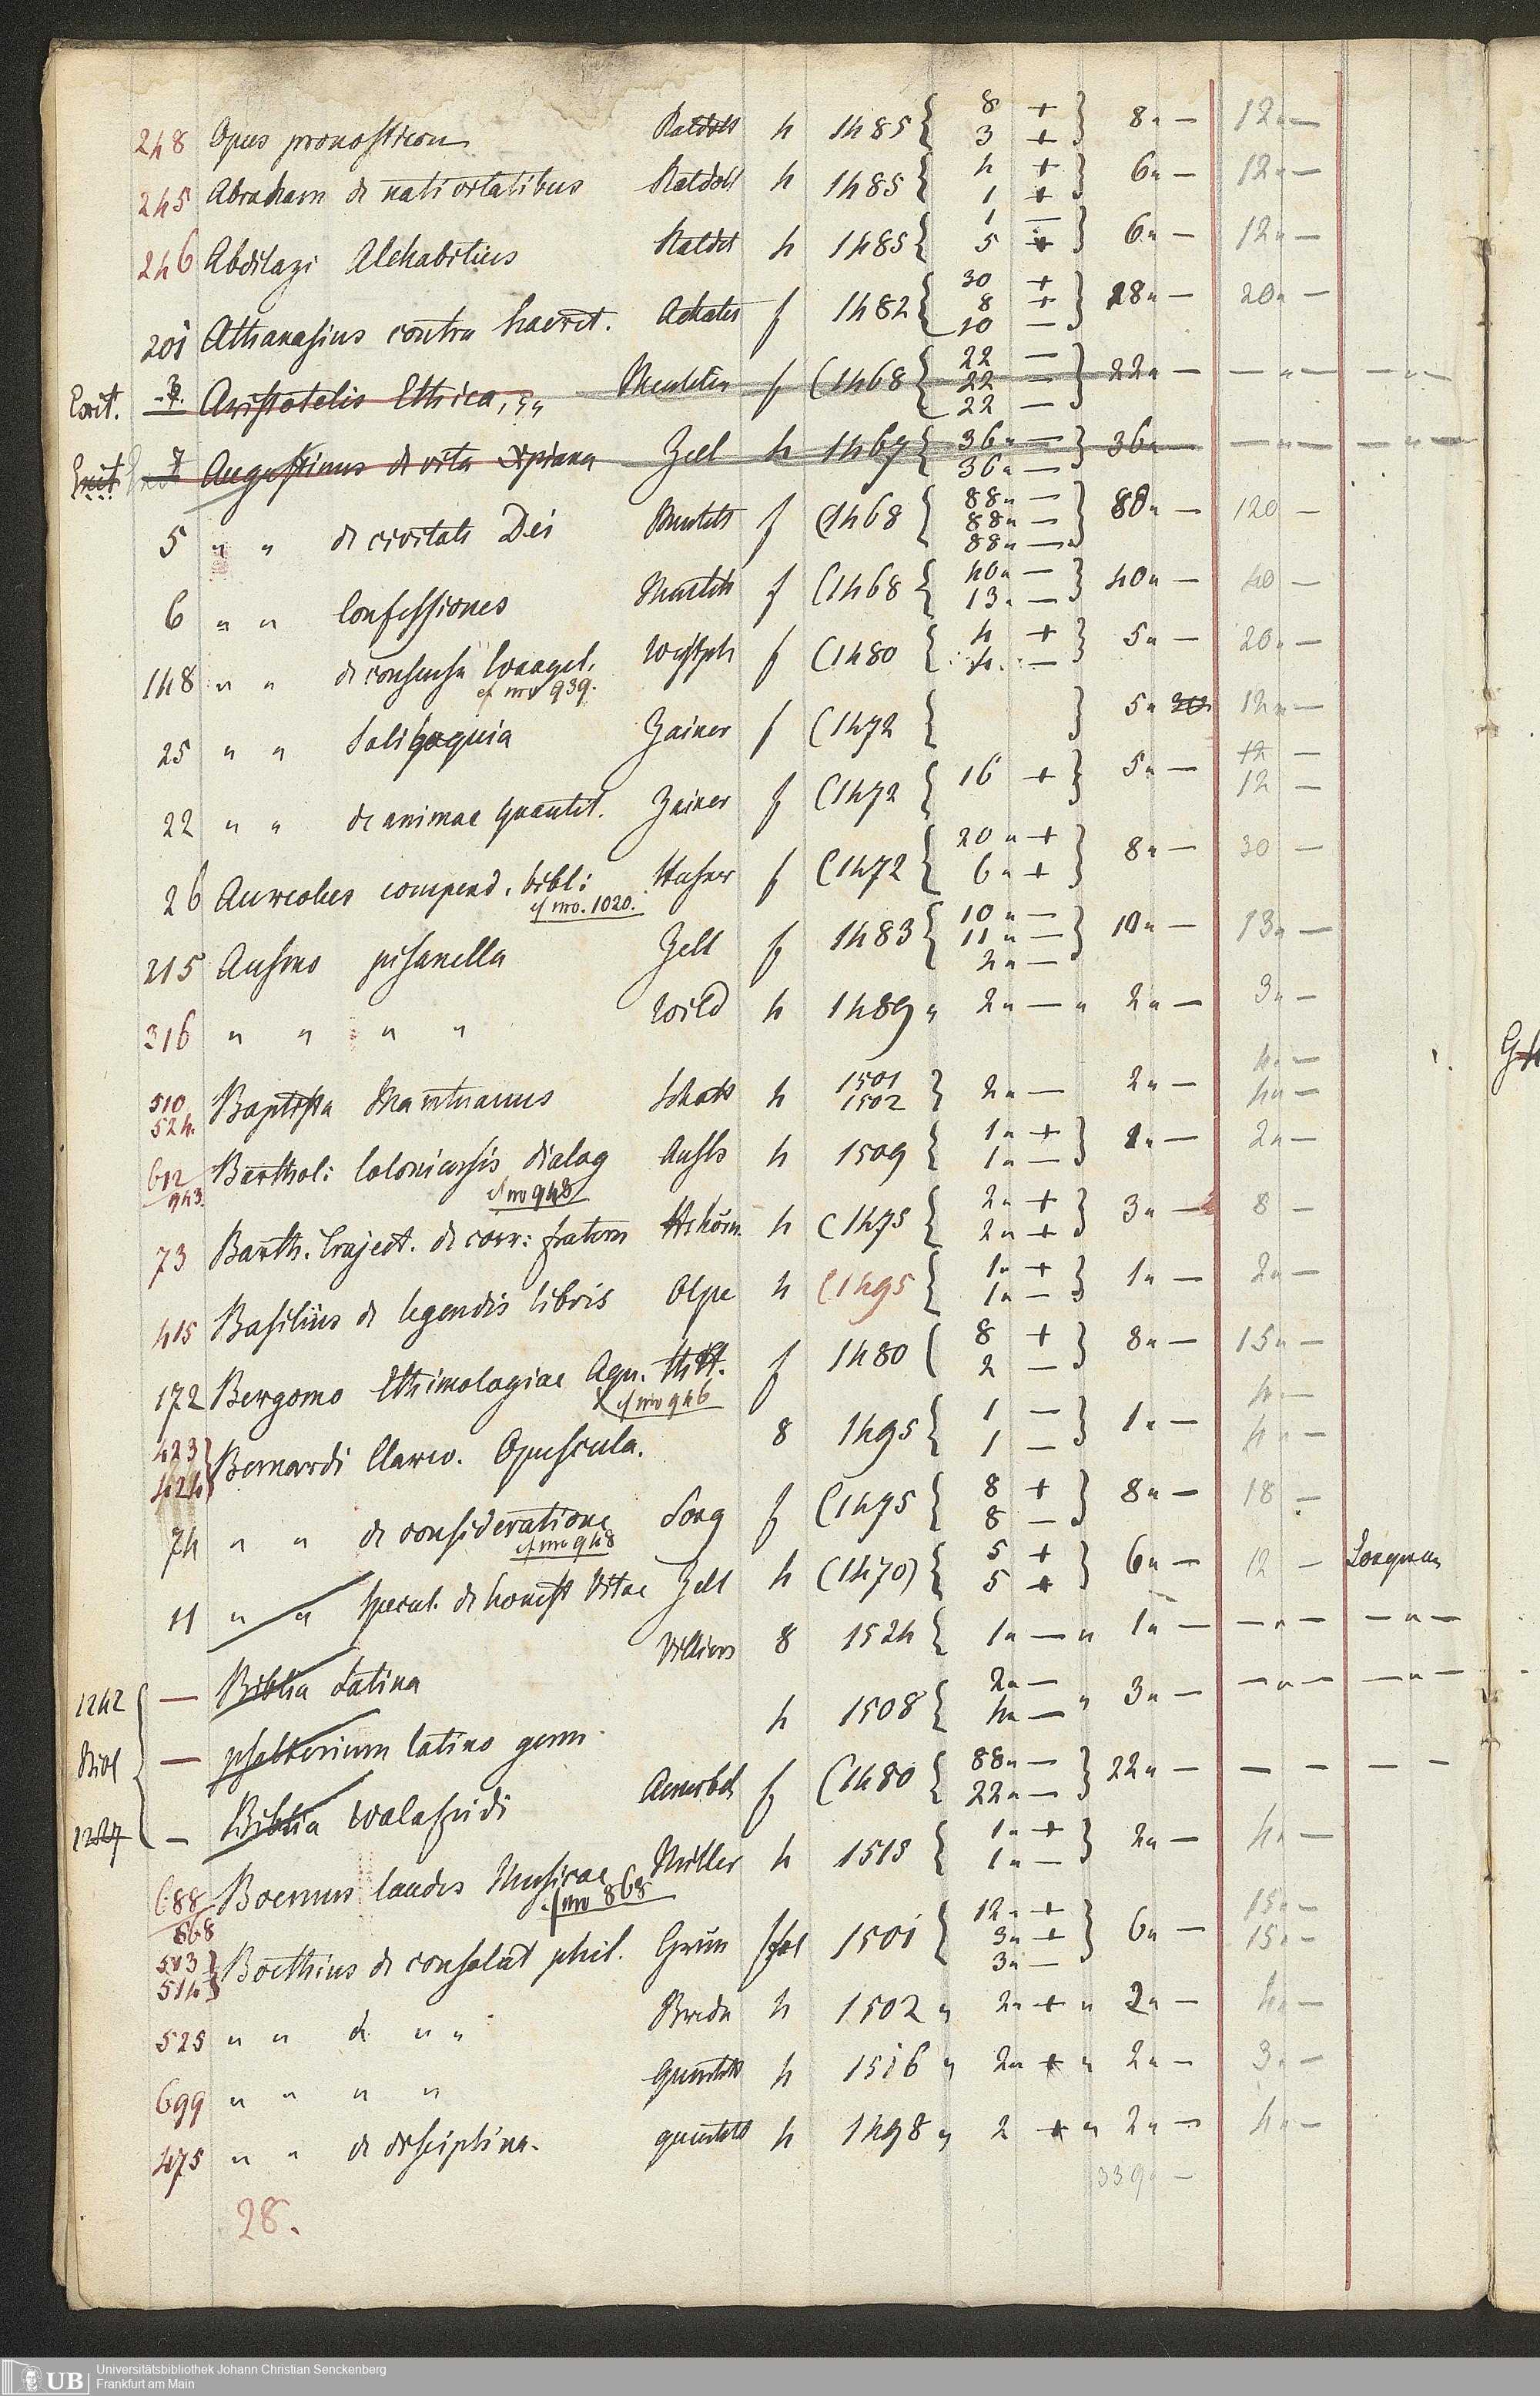 248 Opus pronosticon Ratdolt 4 1485 { 8 + 3 + } 8 „ — 12 „ —
245 Abraham de nativitatibus Ratdolt 4 1485 { 4 + 1 + } 6 „ — 12 „ —
246 Abdilazi Alchabitius Ratdolt 4 1485 { 1 — 5 + } 6 „ — 12 „ —
201 Athanasius contra haeret. Achates f 1482 { 30 + 8 + 10 — } 28 „ — 20 „ —
Exit. Aristotelis Ethica, Mentelin f (1468 { 22 — 22 — 22 — } 22 „ — — „ — — „ —
Exit 7 Augustinus de vita Xpiana Zell 4 1467 { 36 „ — 36 „ — } 36 „ — — „ — — „ —
5 „ „ de civitate Dei Mentels f (1468 { 88 „ — 88 „ — 88 „ — } 88 „ — 120 —
6 „ „ Confessiones Mentels f (1468 { 40 „ — 13 „ — } 40 „ — 40 —
148 „ „ de consensu Evangel. f (1480 { 4 + 4 — } 5 „ — 20 „ —
cf nro 939.
25 „ „ Soliloquia Zainer f (1472 { } 5 „ 30 12 „ —
22 „ „ de animae quantit. Zainer f (1472 { 16 + } 5 „ — 12 — 12 —
26 Aureolus compend. bibl: Husner f (1472 { 20 „ + 6 „ + } 8 „ — 30 —
cf nro. 1020.
215 Ausmo pisanella Zell f 1483 { 10 „ — 11 „ — 2 „ — } 10 „ — 13 „ —
316 „ „ „ „ Wild 4 1489 „ 2 „ — „ 2 „ — 3 „ —
510 524. Baptista Mantuanus Schots 4 1501 1502 } 2 „ — 2 „ — 4 „ — 4 „ —
612 943. Barthol: Coloniensis dialog Ansh 4 1509 { 1 „ + 1 „ — } 1 „ — 2 „ —
cf nro 948
73 Barth. Traject. de corr: fratern 4 (1475 { 2 „ + 2 „ + } 3 „ — 8 —
415 Basilius de legendis libris Olpe 4 (1495 { 1 „ + 1 „ — } 1 „ — 2 „ —
172 Bergomo Ethimologiae Aqu. f 1480 ( 8 + 2 — } 8 „ — 15 „ —
cf nro 946
423 424 } Bernardi Clarev. Opuscula. 8 1495 { 1 — 1 — } 1 „ — 4 — 4 „ —
74 „ „ de consideratione Sorg f (1475 { 8 + 8 — } 8 „ — 18 —
cf nro 948
11 „ „ Specul. de honest Vitae Zell 4 (1470) { 5 + 5 + } 6 „ — 12 —
1242 — Biblia Latina 8 1524 { 1 „ — „ 1 „ — — „ — — „ —
Bibl — psalterium latino germ. 4 1508 { 2 „ — 4 „ — „ 3 „ — — „ — — „ —
1247 — Biblia Walafridi Amerbch f (1480 { 88 „ — 22 „ — } 22 „ — — — — —
688 868 Boemus laudes Musicae Miller 4 1515 { 1 „ + 1 „ — } 2 „ — 4 „ —
cf nro 868
513 514 } Boethius de consolat phil. Grün fol 1501 { 12 „ + 3 „ + 3 „ — } 6 „ — 15 „ — 15 „ —
525 „ „ de „ „ Breda 4 1502 „ 2 „ + „ 2 „ — 4 „ —
699 „ „ „ „ Quentels 4 1516 „ 2 „ + „ 2 „ — 3 „ —
475 „ „ de disciplina. quentels 4 1498 „ 2 + „ 2 „ — 4 „ —
339 „ —
28.
UB Universitätsbibliothek Johann Christian Senckenberg
Frankfurt am Main